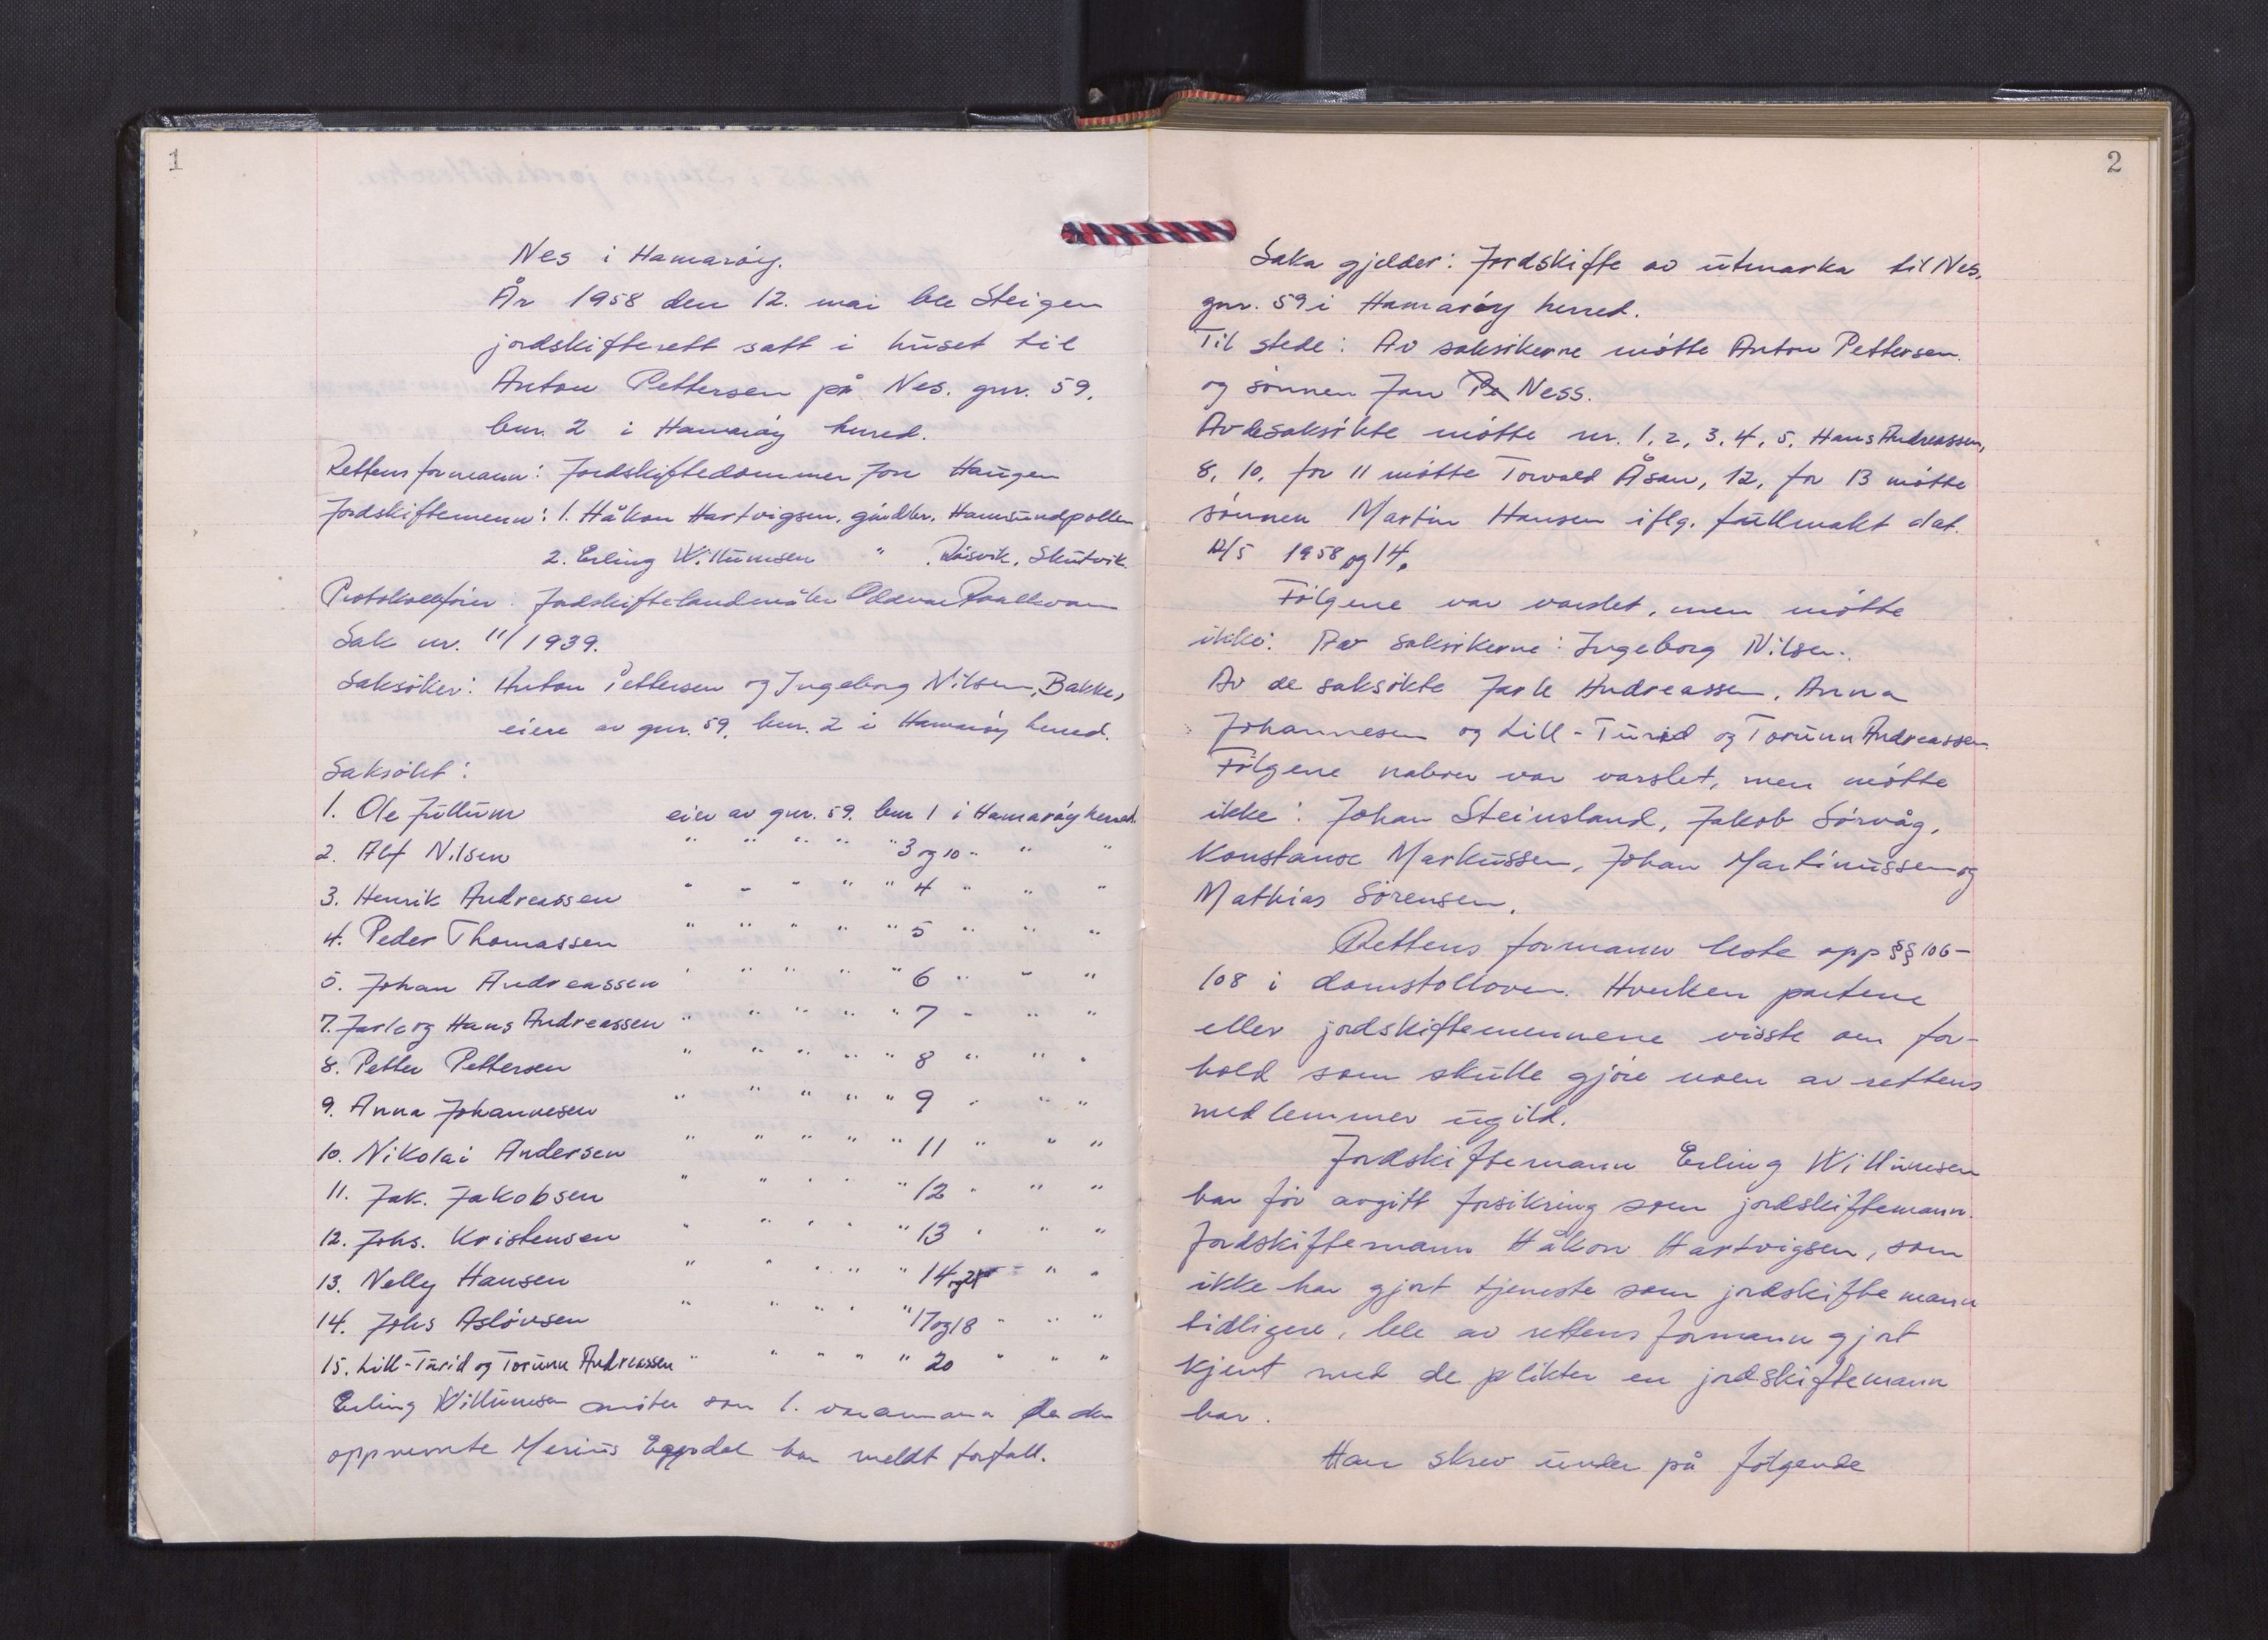 1
Nes i Hamarøy.
År 1958 den 12. mai ble Steigen
jordskifterett satt i huset til
Anton Pettersen på Nes. gnr. 59.
bnr. 2 i Hamarøy herred.
Rettens formann: Jordskiftedommer Jon Haugen
Jordskiftemenn: 1. Håkon Hartvigsen, gårdbr. Hamsundpollen
2. Erling Willumsen " Skutvik.
Protokollfører: Jordskiftelandmåler Oddvar
Sak nr. 11/1939.
Saksøker: Anton Pettersen og Ingeborg Nilsen, Bakke,
eiere av gnr. 59, bnr. 2 i Hamarøy herred.
Saksøkt:
1. Ole Jullum eier av gnr. 59. bnr 1 i Hamarøy herred.
2. Alf Nilsen " " " " " 3 og 10 " " "
3. Henrik Andreassen " " " " " 4 " " "
4. Peder Thomassen " " " " " 5 " " "
5. Johan Andreassen " " " " " 6 " " "
7. Jarle og Hans Andreassen " " " " " 7 " " "
8. Petter Pettersen " " " " " 8 " " "
9. Anna Johannesen " " " " " 9 " " "
10. Nikolai Andersen " " " " " 11 " " "
11. Jak. Jakobsen " " " " " 12 " " "
12. Johs. Kristensen " " " " " 13 " " "
13. Nelly Hansen " " " " " 14 og " " "
14. Johs Asløvsen " " " " " 17 og 18 " " "
15. Lill-Turid og Torunn Andreassen " " " " " 20 " " "
Erling Willumsen møter som 1. varamann da den
oppnevnte har meldt forfall.
2
Saka gjelder: Jordskifte av utmarka til Nes,
gnr. 59 i Hamarøy herred.
Til stede: Av saksøkerne møtte Anton Pettersen
og sønnen Jan Pe Ness.
Av de saksøkte møtte nr. 1, 2, 3, 4, 5, Hans Andreassen,
8, 10, for 11 møtte Torvald Åsan, 12, for 13 møtte
sønnen Martin Hansen iflg. fullmakt dat.
12/5 1958 og 14.
Følgene var varslet, men møtte
ikke: Av saksøkerne: Ingeborg Nilsen.
Av de saksøkte Jarle Andreassen, Anna
Johannesen og Lill-Turid og Torunn Andreassen.
Følgene naboer var varslet, men møtte
ikke: Johan Steinsland, Jakob Sørvåg,
Konstanse Markussen, Johan Martinussen og
Mathias Sørensen.
Rettens formann leste opp §§ 106-
108 i domstolloven. Hverken partene
eller jordskiftemennene visste om for-
hold som skulle gjøre noen av rettens
medlemmer ugild.
Jordskiftemann Erling Willumsen
har før avgitt forsikring som jordskiftemann.
Jordskiftemann Håkon Hartvigsen, som
ikke har gjort tjeneste som jordskiftemann
tidligere, ble av rettens formann gjort
kjent med de plikter en jordskiftemann
har.
Han skrev under på følgende